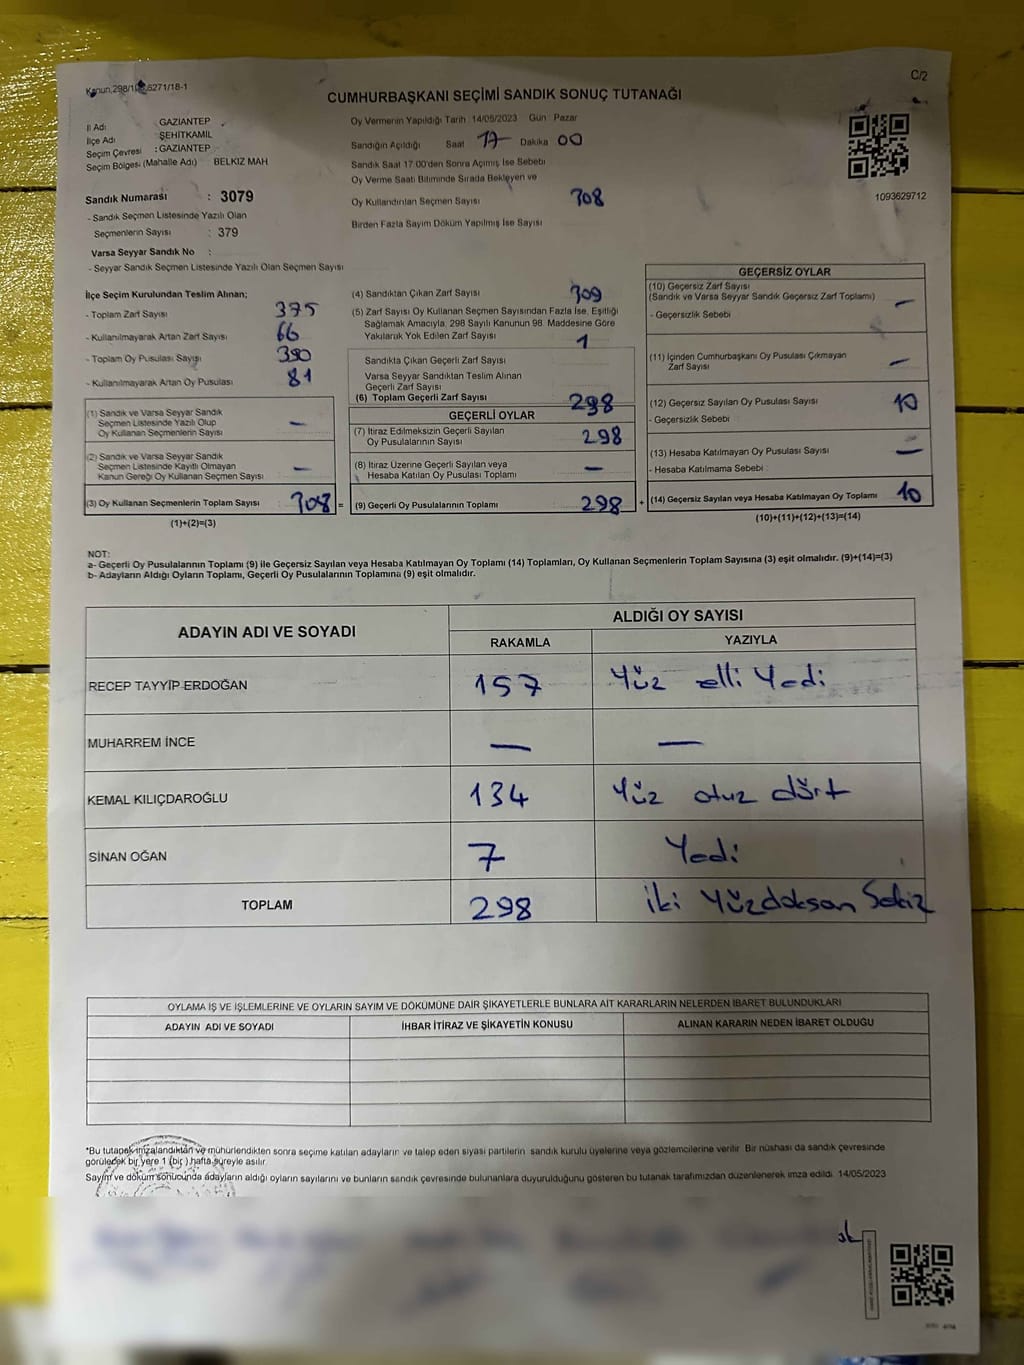 Kanun,298/1 6271/18-1
C/2
CUMHURBAŞKANI SEÇİMİ SANDIK SONUÇ TUTANAĞI
İl Adı : GAZİANTEP
İlçe Adı ŞEHİTKAMİL
Seçim Çevresi : GAZİANTEP
Seçim Bölgesi (Mahalle Adı) BELKIZ MAH
Sandık Numarası : 3079
- Sandık Seçmen Listesinde Yazılı Olan
Seçmenlerin Sayısı : 379
Varsa Seyyar Sandık No :
- Seyyar Sandık Seçmen Listesinde Yazılı Olan Seçmen Sayısı
Oy Vermenin Yapıldığı Tarih 14/05/2023 Gün Pazar
Sandığın Açıldığı Saat 17 Dakika 00
Sandık Saat 17:00'den Sonra Açılmış İse Sebebi
Oy Verme Saati Bitiminde Sırada Bekleyen ve
Oy Kullandırılan Seçmen Sayısı 308
Birden Fazla Sayım Döküm Yapılmış İse Sayısı
1093629712
İlçe Seçim Kurulundan Teslim Alınan;
- Toplam Zarf Sayısı 375
- Kullanılmayarak Artan Zarf Sayısı 66
- Toplam Oy Pusulası Sayısı 390
- Kullanılmayarak Artan Oy Pusulası 81
(1) Sandık ve Varsa Seyyar Sandık
Seçmen Listesinde Yazılı Olup
Oy Kullanan Seçmenlerin Sayısı —
(2) Sandık ve Varsa Seyyar Sandık
Seçmen Listesinde Kayıtlı Olmayan
Kanun Gereği Oy Kullanan Seçmen Sayısı —
(3) Oy Kullanan Seçmenlerin Toplam Sayısı 308 =
(1)+(2)=(3)
(4) Sandıktan Çıkan Zarf Sayısı 309
(5) Zarf Sayısı Oy Kullanan Seçmen Sayısından Fazla İse, Eşitliği
Sağlamak Amacıyla, 298 Sayılı Kanunun 98. Maddesine Göre
Yakılarak Yok Edilen Zarf Sayısı 1
Sandıkta Çıkan Geçerli Zarf Sayısı
Varsa Seyyar Sandıktan Teslim Alınan
Geçerli Zarf Sayısı
(6) Toplam Geçerli Zarf Sayısı 298
GEÇERLİ OYLAR
(7) İtiraz Edilmeksizin Geçerli Sayılan
Oy Pusulalarının Sayısı 298
(8) İtiraz Üzerine Geçerli Sayılan veya
Hesaba Katılan Oy Pusulası Toplamı —
(9) Geçerli Oy Pusulalarının Toplamı 298 +
GEÇERSİZ OYLAR
(10) Geçersiz Zarf Sayısı
(Sandık ve Varsa Seyyar Sandık Geçersiz Zarf Toplamı) —
- Geçersizlik Sebebi
(11) İçinden Cumhurbaşkanı Oy Pusulası Çıkmayan
Zarf Sayısı —
(12) Geçersiz Sayılan Oy Pusulası Sayısı 10
- Geçersizlik Sebebi :
(13) Hesaba Katılmayan Oy Pusulası Sayısı —
- Hesaba Katılmama Sebebi :
(14) Geçersiz Sayılan veya Hesaba Katılmayan Oy Toplamı 10
(10)+(11)+(12)+(13)=(14)
NOT:
a- Geçerli Oy Pusulalarının Toplamı (9) ile Geçersiz Sayılan veya Hesaba Katılmayan Oy Toplamı (14) Toplamları, Oy Kullanan Seçmenlerin Toplam Sayısına (3) eşit olmalıdır. (9)+(14)=(3)
b- Adayların Aldığı Oyların Toplamı, Geçerli Oy Pusulalarının Toplamına (9) eşit olmalıdır.
ADAYIN ADI VE SOYADI ALDIĞI OY SAYISI
RAKAMLA YAZIYLA
RECEP TAYYİP ERDOĞAN 157 Yüz elli Yedi
MUHARREM İNCE — —
KEMAL KILIÇDAROĞLU 134 Yüz otuz dört
SİNAN OĞAN 7 Yedi
TOPLAM 298 iki Yüzdoksan Sekiz
OYLAMA İŞ VE İŞLEMLERİNE VE OYLARIN SAYIM VE DÖKÜMÜNE DAİR ŞİKAYETLERLE BUNLARA AİT KARARLARIN NELERDEN İBARET BULUNDUKLARI
ADAYIN ADI VE SOYADI İHBAR İTİRAZ VE ŞİKAYETİN KONUSU ALINAN KARARIN NEDEN İBARET OLDUĞU
*Bu tutanak imzalandıktan ve mühürlendikten sonra seçime katılan adayların ve talep eden siyasi partilerin sandık kurulu üyelerine veya gözlemcilerine verilir. Bir nüshası da sandık çevresinde
görülecek bir yere 1 (bir ) hafta süreyle asılır.
Sayım ve döküm sonucunda adayların aldığı oyların sayılarını ve bunların sandık çevresinde bulunanlara duyurulduğunu gösteren bu tutanak tarafımızdan düzenlenerek imza edildi. 14/05/2023